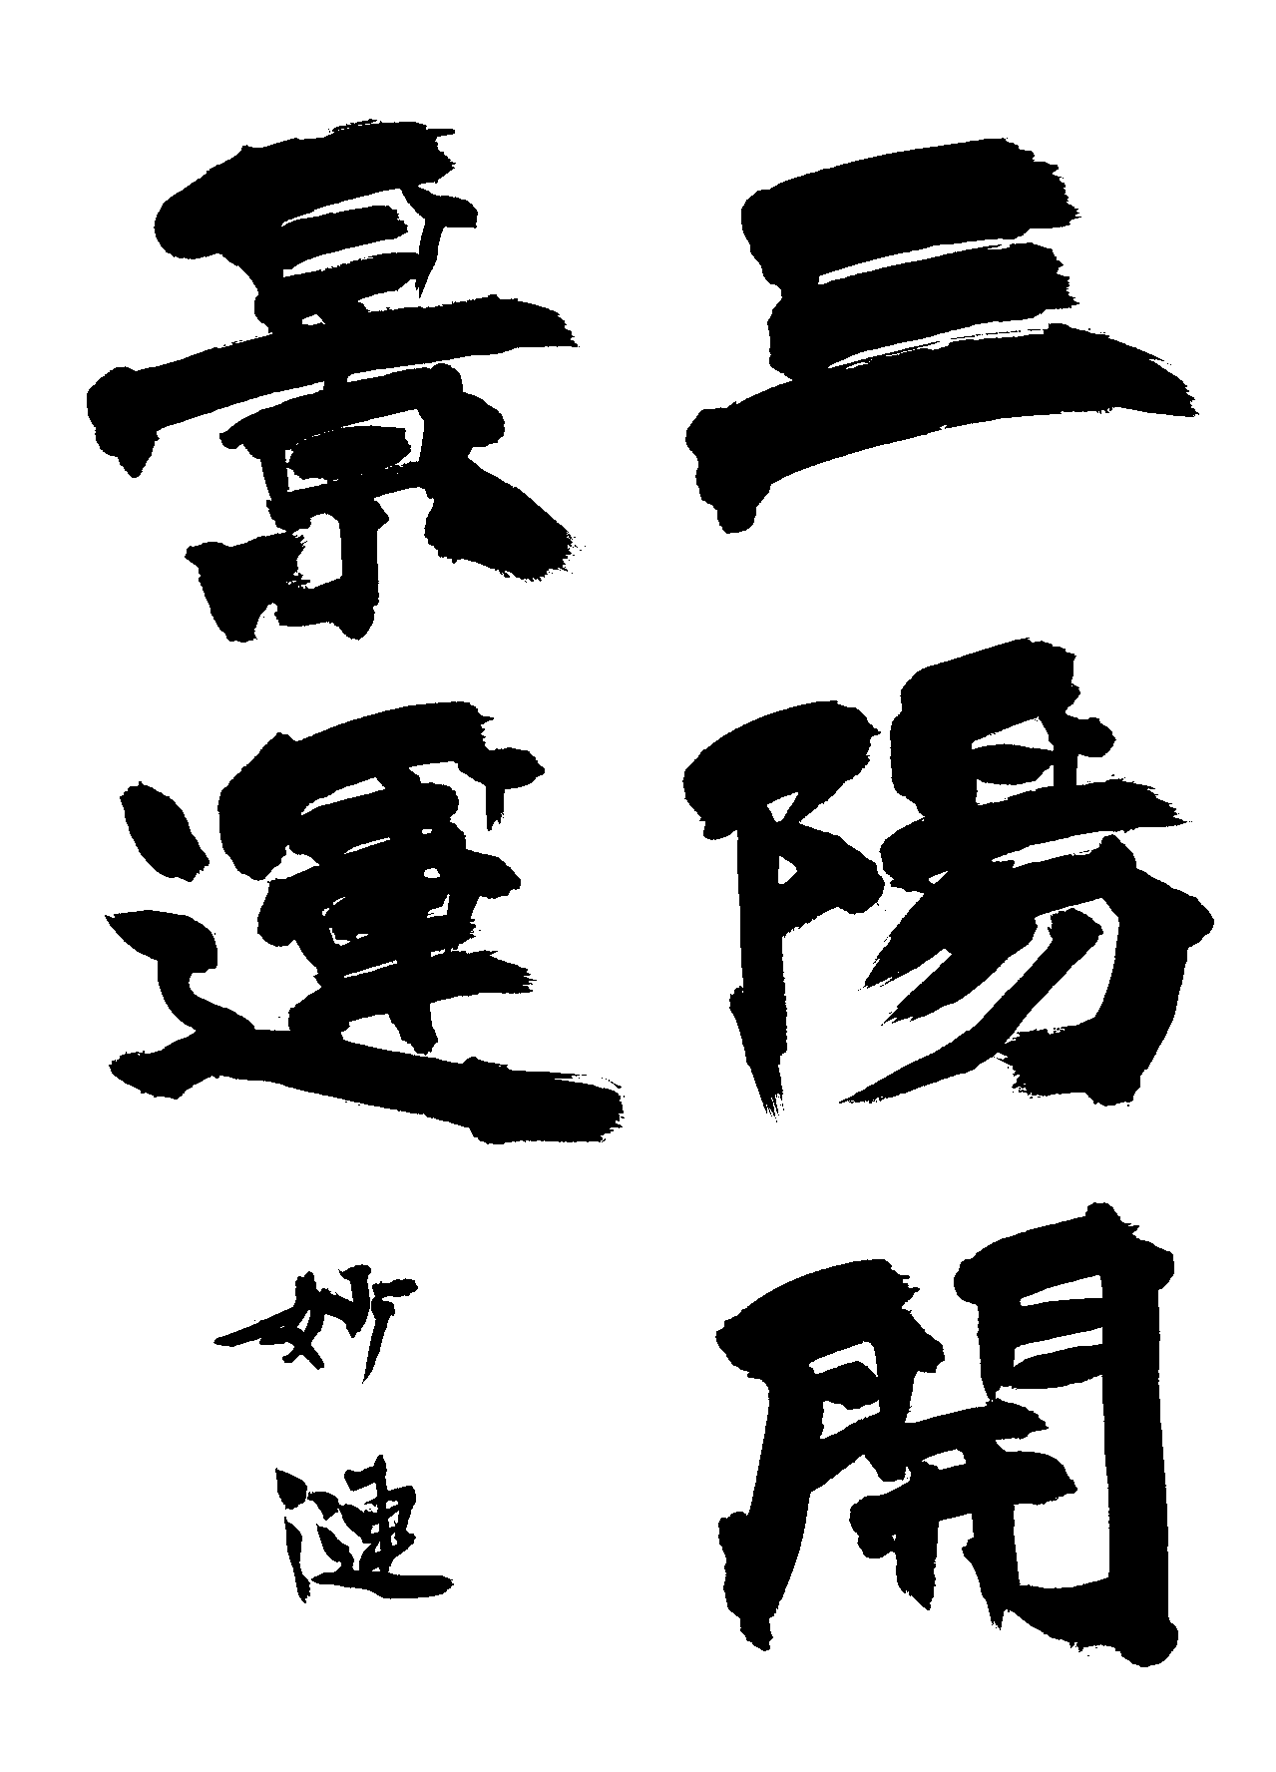 三陽開
景運
妙漣